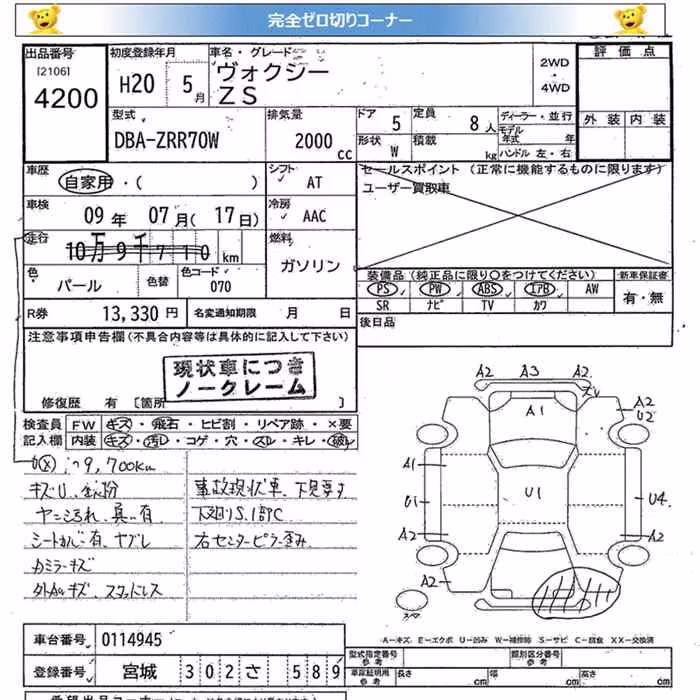 完全ゼロ切りコーナー
出品番号 初度登録年月 車名・グレード 2WD 評価点
[2106] H20 5月 ヴォクシー
4200 ZS 4WD
型式 排気量 ドア 5 定員 8人 ディーラー・並行 外装 内装
DBA-ZRR70W 2000cc 形状 W 積載 kg モデル年式 年
ハンドル 左・右
車歴 自家用・( ) シフト AT セールスポイント (正常に機能するものに限ります)
ユーザー買取車
車検 09年 07月(17日) 冷房 AAC
走行 10万9千710km 燃料 ガソリン
色 パール 色替 色コード 070
装備品(純正品に限り○をつけてください) 新車保証書
PS PW ABS エアB AW 有・無
SR ナビ TV カワ
R券 13,330円 名変通知期限 月 日 後日品
注意事項申告欄(不具合内容等は具体的に記入して下さい)
現状車につき
ノークレーム
修復歴 有 [箇所 ]
検査員 FW キズ・飛石・ヒビ割・リペア跡・×要
記入欄 内装 キズ・汚レ・コゲ・穴・スレ・キレ・破レ
A2 A3 A2
A2
U2
A1
A1
U1 U1 U4
A2 A2
A2
キズU
ヤニ 有 事故現状車、下見要す
シートカバー有
右センターピラー歪み
カミラーキズ
スタッドレス
A-キズ E-エクボ U-凹み W-補修跡 S-サビ C-腐食 XX-交換済
車台番号 0114945 型式指定番号 参考 類別区分番号 参考
登録番号 宮城 302 さ 589 車庫証明用 参考 長さ cm 幅 cm 高さ cm